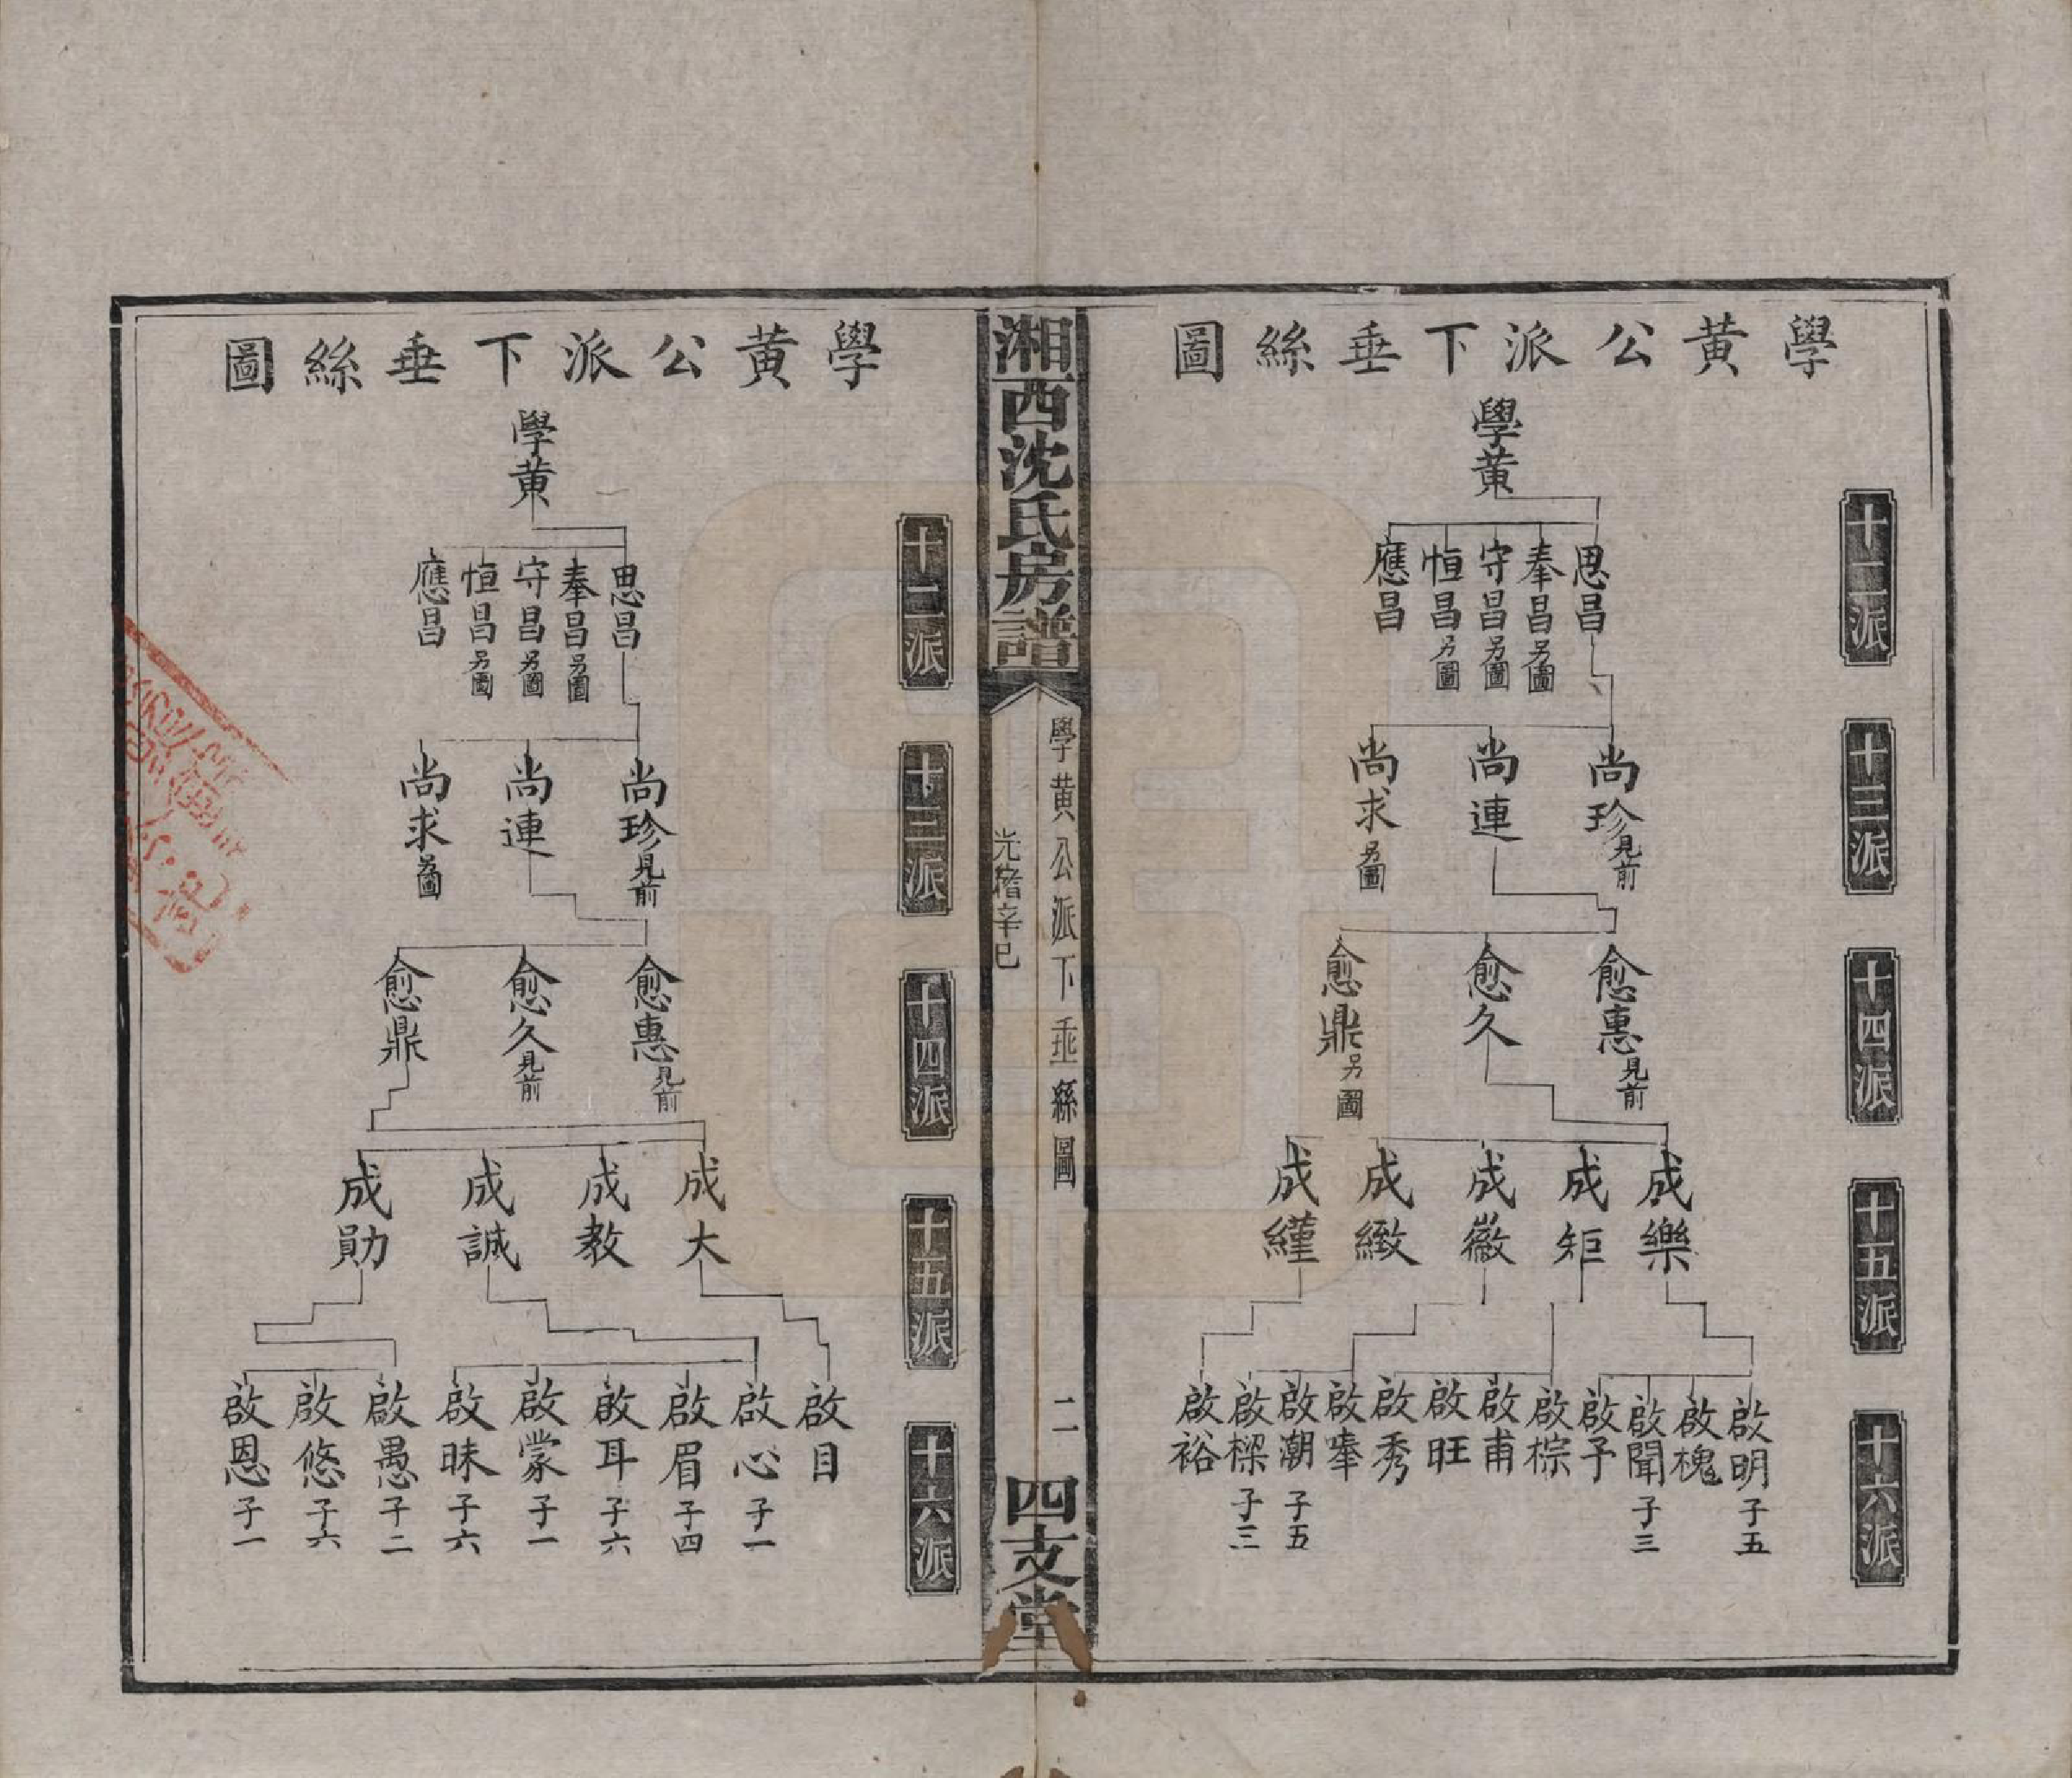 學黃公派下垂絲圖
十二派
十三派
十四派
十五派
十六派
學黃
思昌
奉昌另圖
守昌另圖
恒昌另圖
應昌
尚珍見前
尚連
尚求另圖
愈惠見前
愈久
愈鼎另圖
成樂
成矩
成徽
成緻
成繀
啟明子五
啟槐
啟聞子三
啟予
啟棕
啟甫
啟旺
啟秀
啟奉
啟潮子五
啟樑子三
啟裕
湘西沈氏房譜
學黃公派下垂絲圖
二
光緒辛巳
四支堂
學黃公派下垂絲圖
十二派
十三派
十四派
十五派
十六派
學黃
思昌
奉昌另圖
守昌另圖
恒昌另圖
應昌
尚珍見前
尚連
尚求另圖
愈惠見前
愈久見前
愈鼎
成大
成教
成誠
成勛
啟目
啟心子一
啟眉子四
啟耳子六
啟蒙子一
啟昧子六
啟愚子二
啟悠子六
啟恩子一